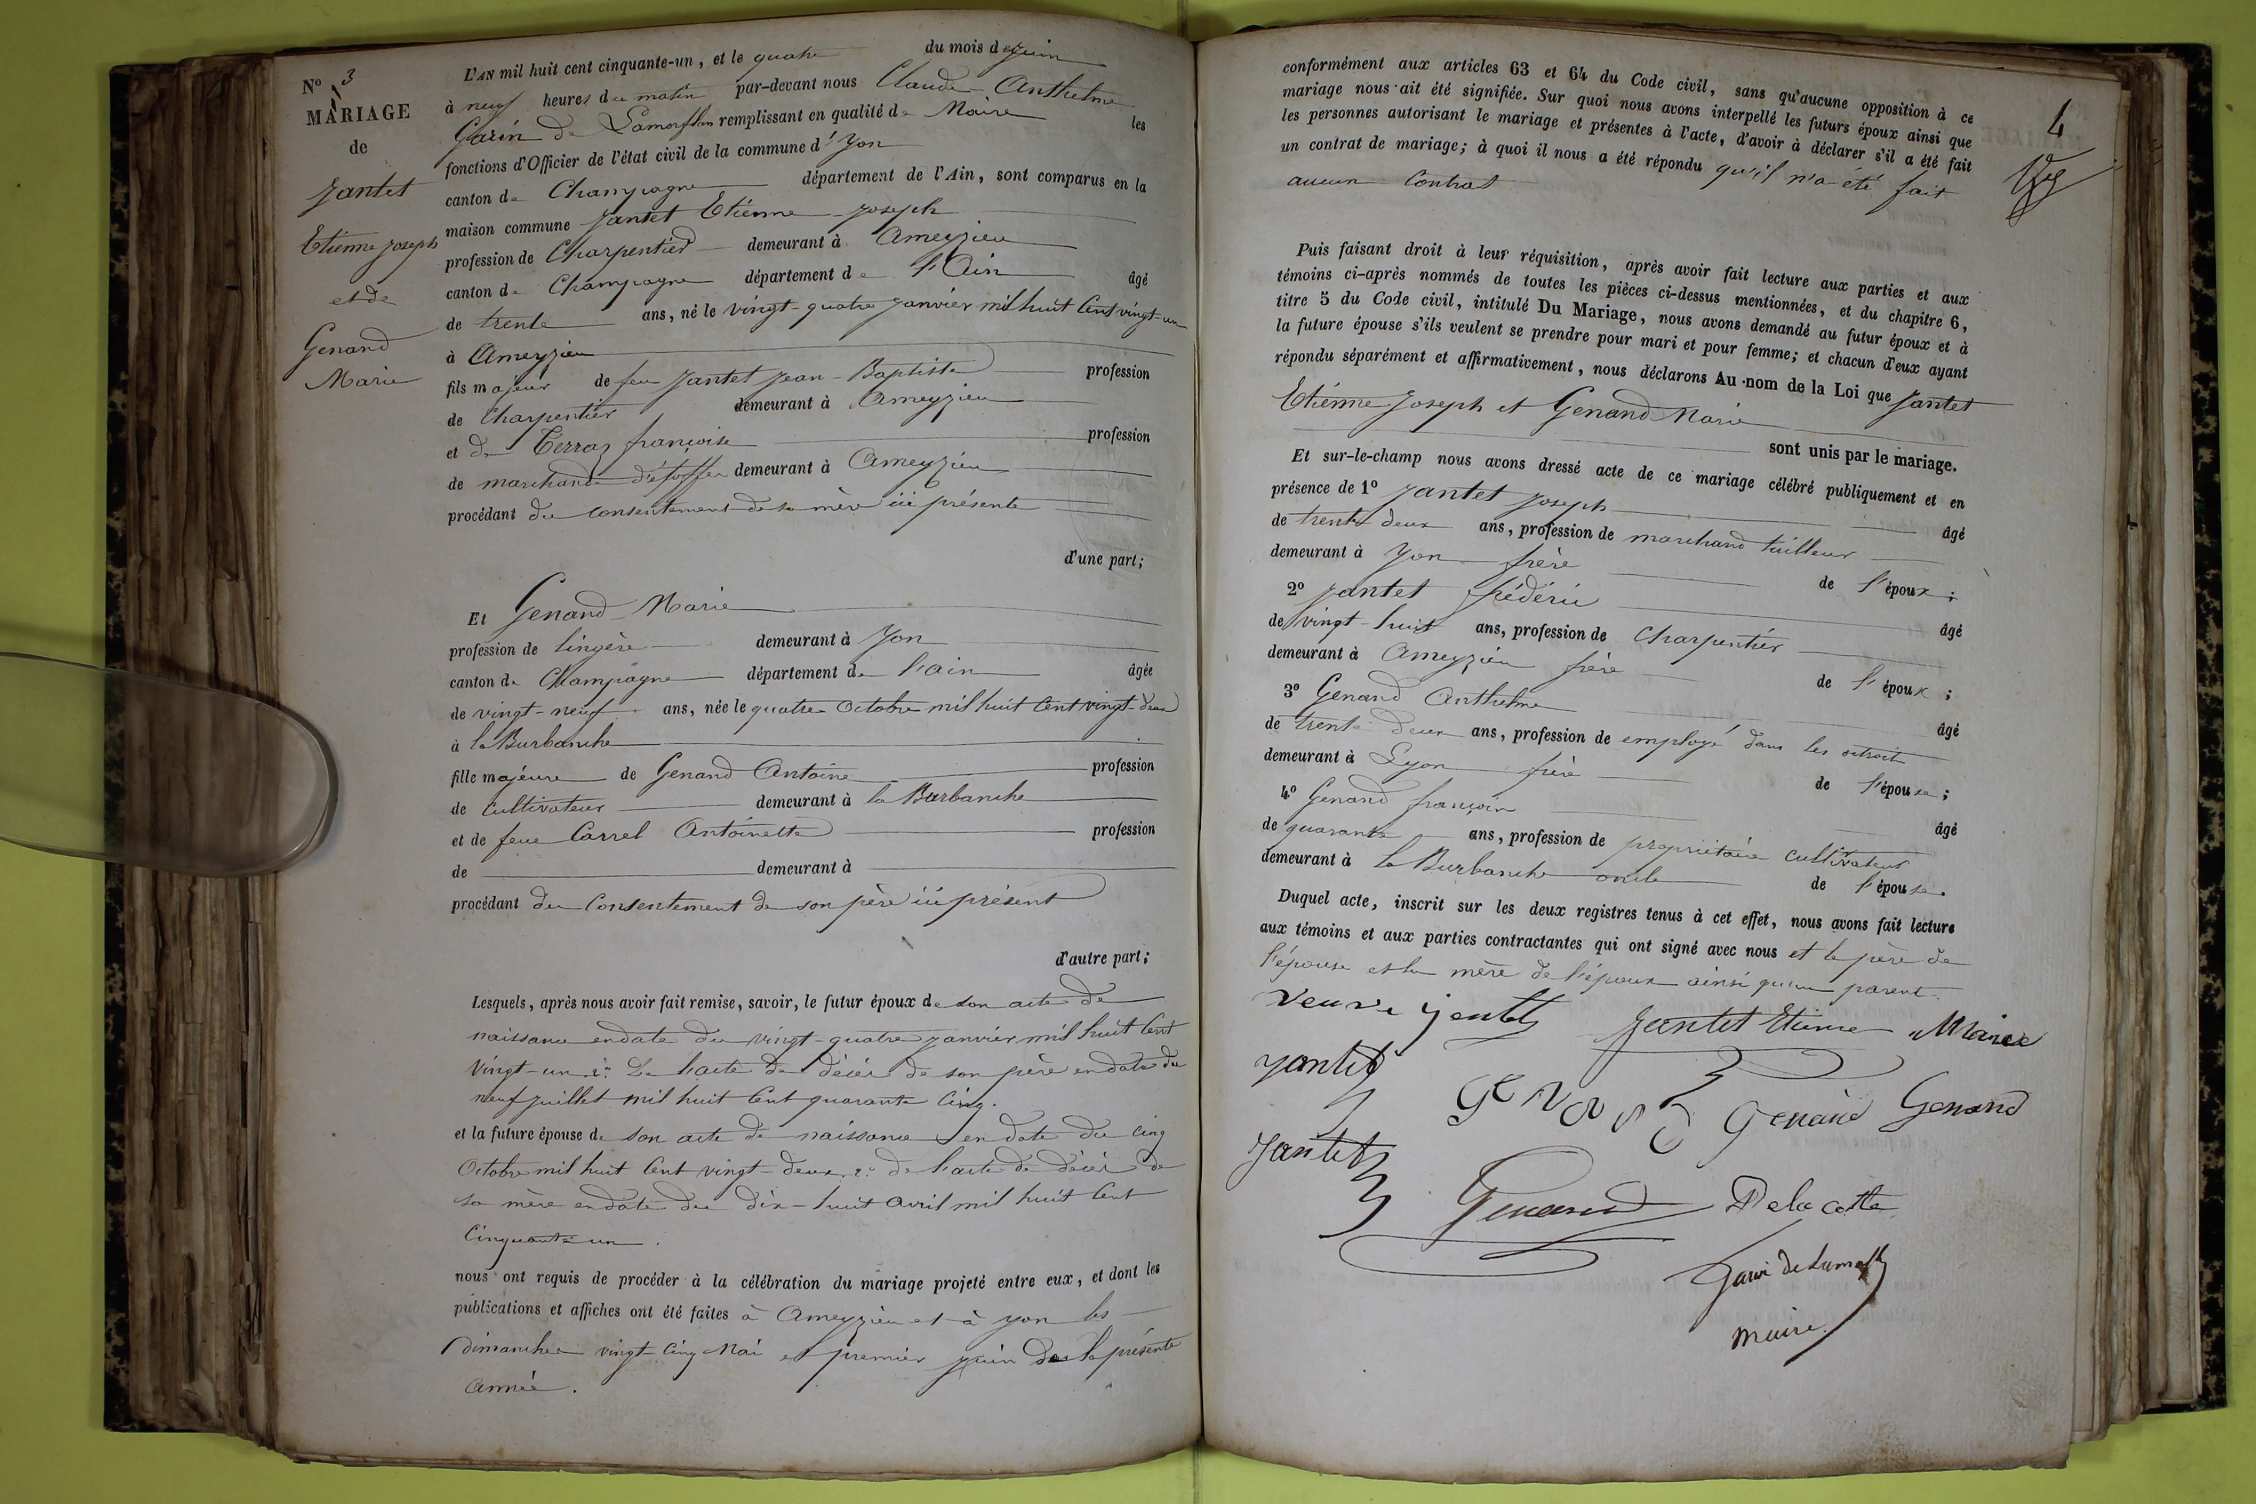 N° 3
MARIAGE
de
Jantet
Etienne Joseph
et de
Genand
Marie
L'AN mil huit cent cinquante-un, et le quatre du mois de Juin
à neuf heures du matin par-devant nous Claude Anthelme
Garin de Lamorflan remplissant en qualité de Maire les
fonctions d'Officier de l'état civil de la commune d'Yon
canton de Champagne département de l'Ain, sont comparus en la
maison commune Jantet Etienne Joseph
profession de Charpentier demeurant à Ameyzieu
canton de Champagne département de l'Ain âgé
de trente ans, né le vingt-quatre janvier mil huit Cent vingt-un
à Ameyzieu
fils majeur de feu Jantet Jean-Baptiste profession
de Charpentier demeurant à Ameyzieu
et de Terraz françoise profession
de marchande d'étoffes demeurant à Ameyzieu
procédant du consentement de sa mère ici présente
d'une part;
Et Genand Marie
profession de lingère demeurant à Yon
canton de Champagne département de l'ain âgée
de vingt-neuf ans, née le quatre Octobre mil huit Cent vingt-deux
à la Burbanche
fille majeure de Genand Antoine profession
de Cultivateur demeurant à la Burbanche
et de feue Carrel Antoinette profession
de demeurant à
procédant du Consentement de son père ici présent
d'autre part;
Lesquels, après nous avoir fait remise, savoir, le futur époux de son acte de
naissance en date du vingt-quatre janvier mil huit Cent
Vingt-un. 2° De l'acte de décès de son père en date du
neuf juillet mil huit Cent quarante Cinq.
et la future épouse de son acte de naissance en date du cinq
Octobre mil huit Cent vingt-deux. 2° de l'acte de décès de
sa mère en date du dix-huit avril mil huit Cent
Cinquante un.
nous ont requis de procéder à la célébration du mariage projeté entre eux, et dont les
publications et affiches ont été faites à Ameyzieu et à yon les
dimanches vingt-Cinq Mai et premier juin de la présente
année.
conformément aux articles 63 et 64 du Code civil, sans qu'aucune opposition à ce
mariage nous ait été signifiée. Sur quoi nous avons interpellé les futurs époux ainsi que
les personnes autorisant le mariage et présentes à l'acte, d'avoir à déclarer s'il a été fait
un contrat de mariage; à quoi il nous a été répondu qu'il n'a été fait
aucun Contrat
4
Puis faisant droit à leur réquisition, après avoir fait lecture aux parties et aux
témoins ci-après nommés de toutes les pièces ci-dessus mentionnées, et du chapitre 6,
titre 5 du Code civil, intitulé Du Mariage, nous avons demandé au futur époux et à
la future épouse s'ils veulent se prendre pour mari et pour femme; et chacun d'eux ayant
répondu séparément et affirmativement, nous déclarons Au nom de la Loi que Jantet
Etienne Joseph et Genand Marie
sont unis par le mariage.
Et sur-le-champ nous avons dressé acte de ce mariage célébré publiquement et en
présence de 1° Jantet Joseph âgé
de trente deux ans, profession de marchand tailleur
demeurant à Yon frère de l'époux;
2° Jantet frédéric âgé
de vingt-huit ans, profession de Charpentier
demeurant à Ameyzieu frère de l'époux;
3° Genand Anthelme âgé
de trente deux ans, profession de employé dans les octrois
demeurant à Lyon frère de l'épouse;
4° Genand françois âgé
de quarante ans, profession de propriétaire cultivateur
demeurant à la Burbanche oncle de l'épouse.
Duquel acte, inscrit sur les deux registres tenus à cet effet, nous avons fait lecture
aux témoins et aux parties contractantes qui ont signé avec nous et le père de
l'épouse et la mère de l'époux ainsi qu'un parent.
veuve jentet Jantet Etienne Marie
Jantet Genand Genand
Jantet Genand Delacotte
maire